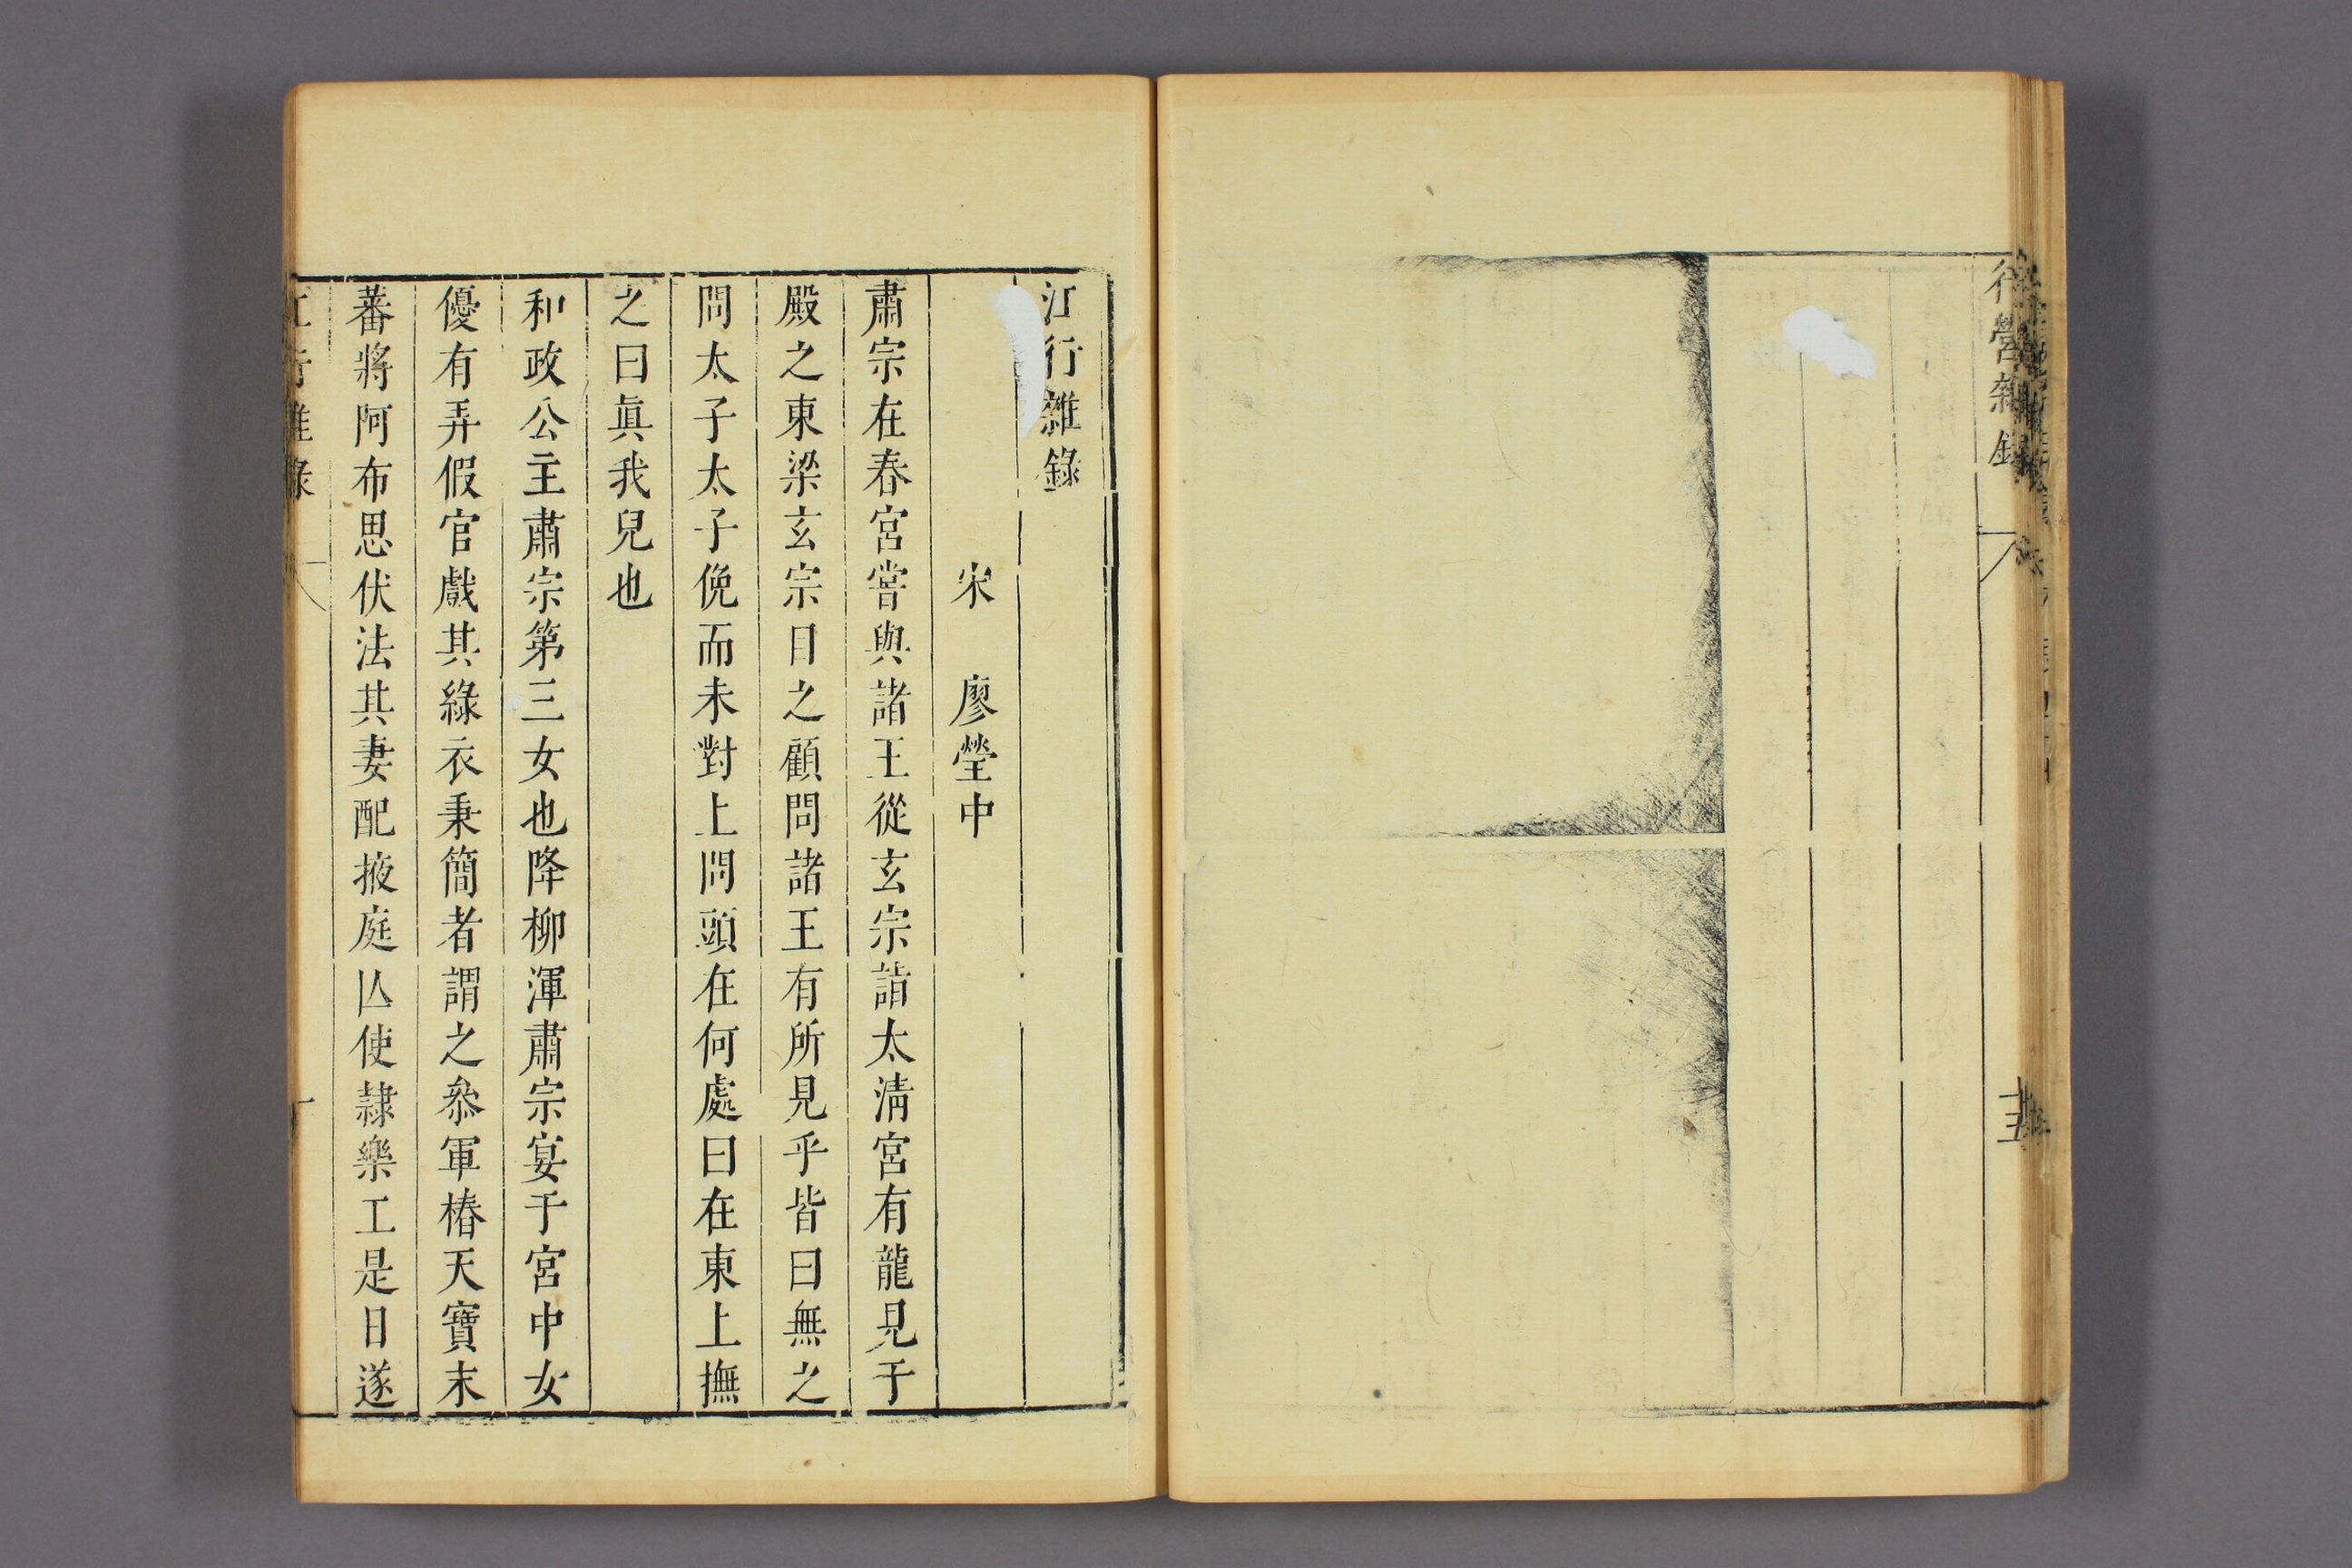 行營雜錄
江行雜錄
宋 廖瑩中
肅宗在春宮嘗與諸王從玄宗詣太淸宮有龍見于
殿之東梁玄宗目之顧問諸王有所見乎皆曰無之
問太子太子俛而未對上問頭在何處曰在東上撫
之曰眞我兒也
和政公主肅宗第三女也降柳渾肅宗宴于宮中女
優有弄假官戲其綠衣秉簡者謂之叅軍樁天寶末
蕃將阿布思伏法其妻配掖庭㠯使隷樂工是日遂